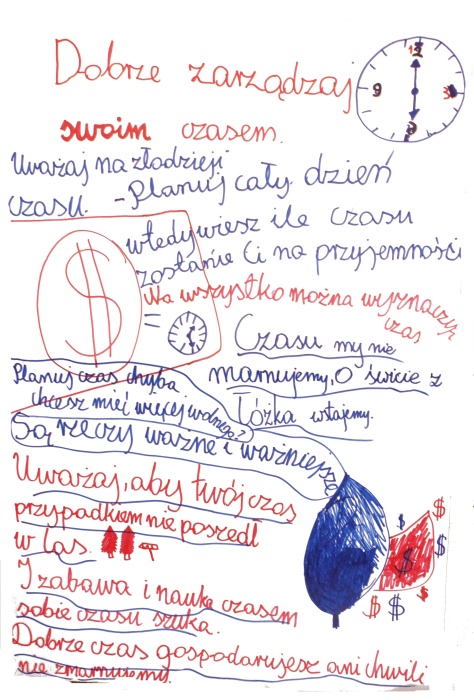 Dobrze zarządzaj
swoim czasem.
12
3
6
9
Uważaj na złodzieji
czasu.
-Planuj cały dzień
wtedy wiesz ile czasu
zostanie Ci na przyjemności
$
=
Na wszystko można wyznaczyć
czas
Czasu my nie
marnujemy, O świcie z
łóżka wstajemy.
Planuj czas chyba
chcesz mieć więcej wolnego?
Są rzeczy ważne i ważniejsze
Uważaj, aby twój czas
przypadkiem nie poszedł
w las.
I zabawa i nauka czasem
sobie czasu szuka.
Dobrze czas gospodarujesz ani chwili
nie zmarnujemy.
$
$
$
$
$
$
$
$